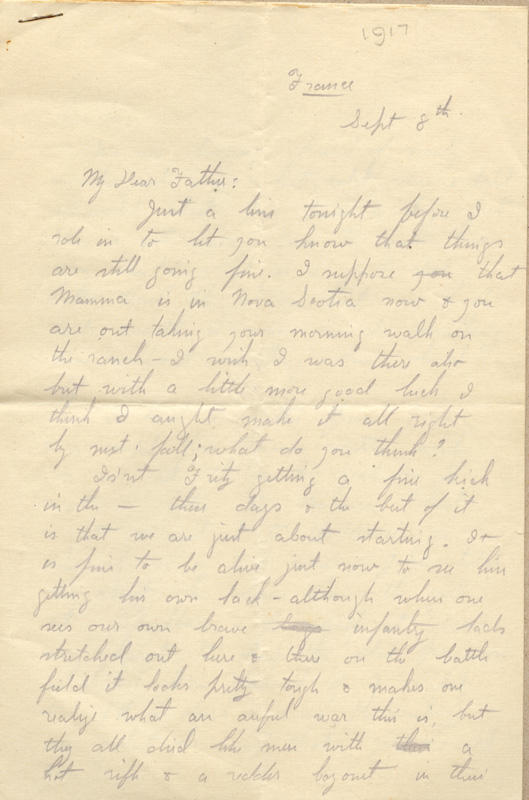 1917
France
Sept 8th.
My Dear Father:
Just a line tonight before I
role in to let you know that things
are still going fine. I suppose you that
Mamma is in Nova Scotia now & you
are out taking your morning walk on
the ranch - I wish I was there also
but with a little more good luck I
think I aught make it all right
by next fall; what do you think?
Is'nt Fritz getting a fine kick
in the — these days & the best of it
is that we are just about starting. It
is fine to be alive just now to see him
getting his own back - although when one
sees our own brave boys infantry lads
stretched out here & there on the battle
field it looks pretty tough & makes one
realize what an awful war this is, but
they all died like men with their a
hot rifle & a redder bayonet in their